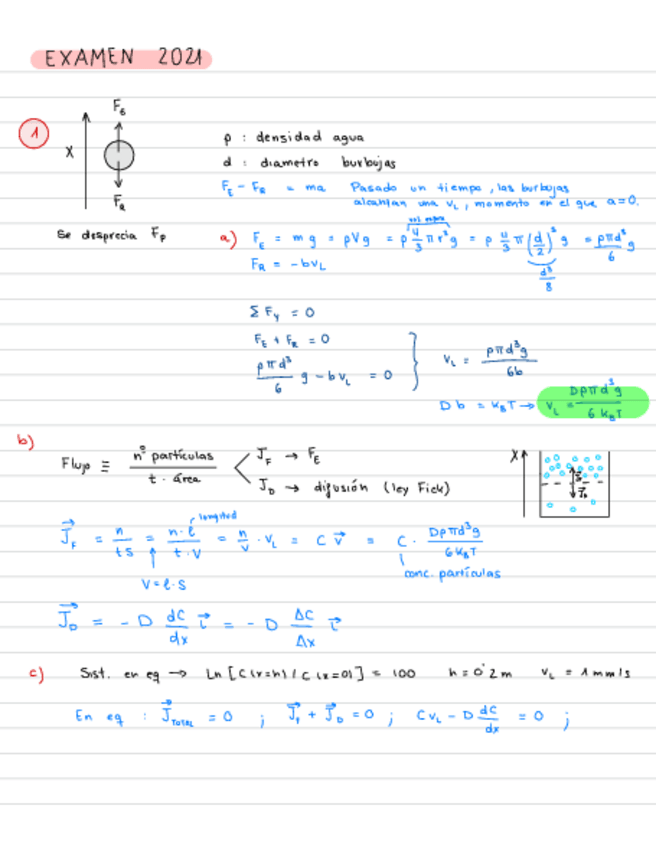 EXAMEN 2021
1
F_E
x
F_R
Se desprecia F_p
ρ : densidad agua
d : diametro burbujas
F_E - F_R = ma Pasado un tiempo, las burbujas
alcanzan una v_L, momento en el que a=0.
a) F_E = mg = ρVg = ρ 4/3 π r³ g = ρ 4/3 π (d/2)³ g = ρπd³/6 g
d³/8
F_R = -bv_L
Σ F_y = 0
F_E + F_R = 0
ρπd³/6 g - bv_L = 0
v_L = ρπd³g/6b
Db = K_BT → v_L = Dρπd³g/6 K_BT
b)
Flujo ≡ nº partículas / t · área
J_F → F_E
J_D → difusión (ley Fick)
x
J_F = n/tS = n·l/t·V = n/V · v_L = C v = C · Dρπd³g/6K_BT
longitud
V = l·S
conc. partículas
J_D = - D dC/dx i = - D ΔC/Δx i
c) Sist. en eq → Ln [C(x=h) / C(x=0)] = 100 h = 0'2 m v_L = 1 mm/s
En eq : J_TOTAL = 0 ; J_F + J_D = 0 ; Cv_L - D dC/dx = 0 ;